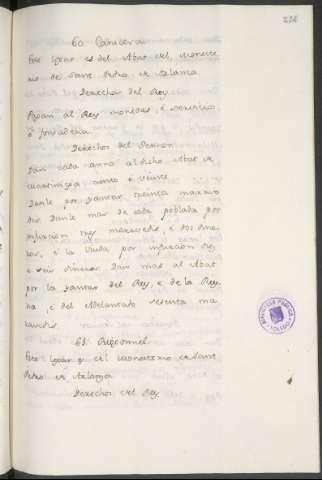 226
60 Canicera
Este logar es del Abat del Moneste
rio de Sant Pedro de Arlança
Derechos del Rey
Pagan al Rey monedas, é servicios
é fonsadera
Derechos del Sennor
Dan cada anno al dicho Abat de
ciento é veinte
Danle por yantar treinta marave
dis. Danle mas de cada poblada por
infurcion tres maravedis, é dos dine
ros, é la viuda por infurcion dos,
é seis dineros. Dan mas al Abat
por la yantar del Rey, é de la Rey
na, é del Adelantado sesenta ma
ravedis.
61
Este logar es del monesterio de Sant
Pedro de Arlança
Derechos del Rey
BIBLIOTECA PUBLICA
TOLEDO